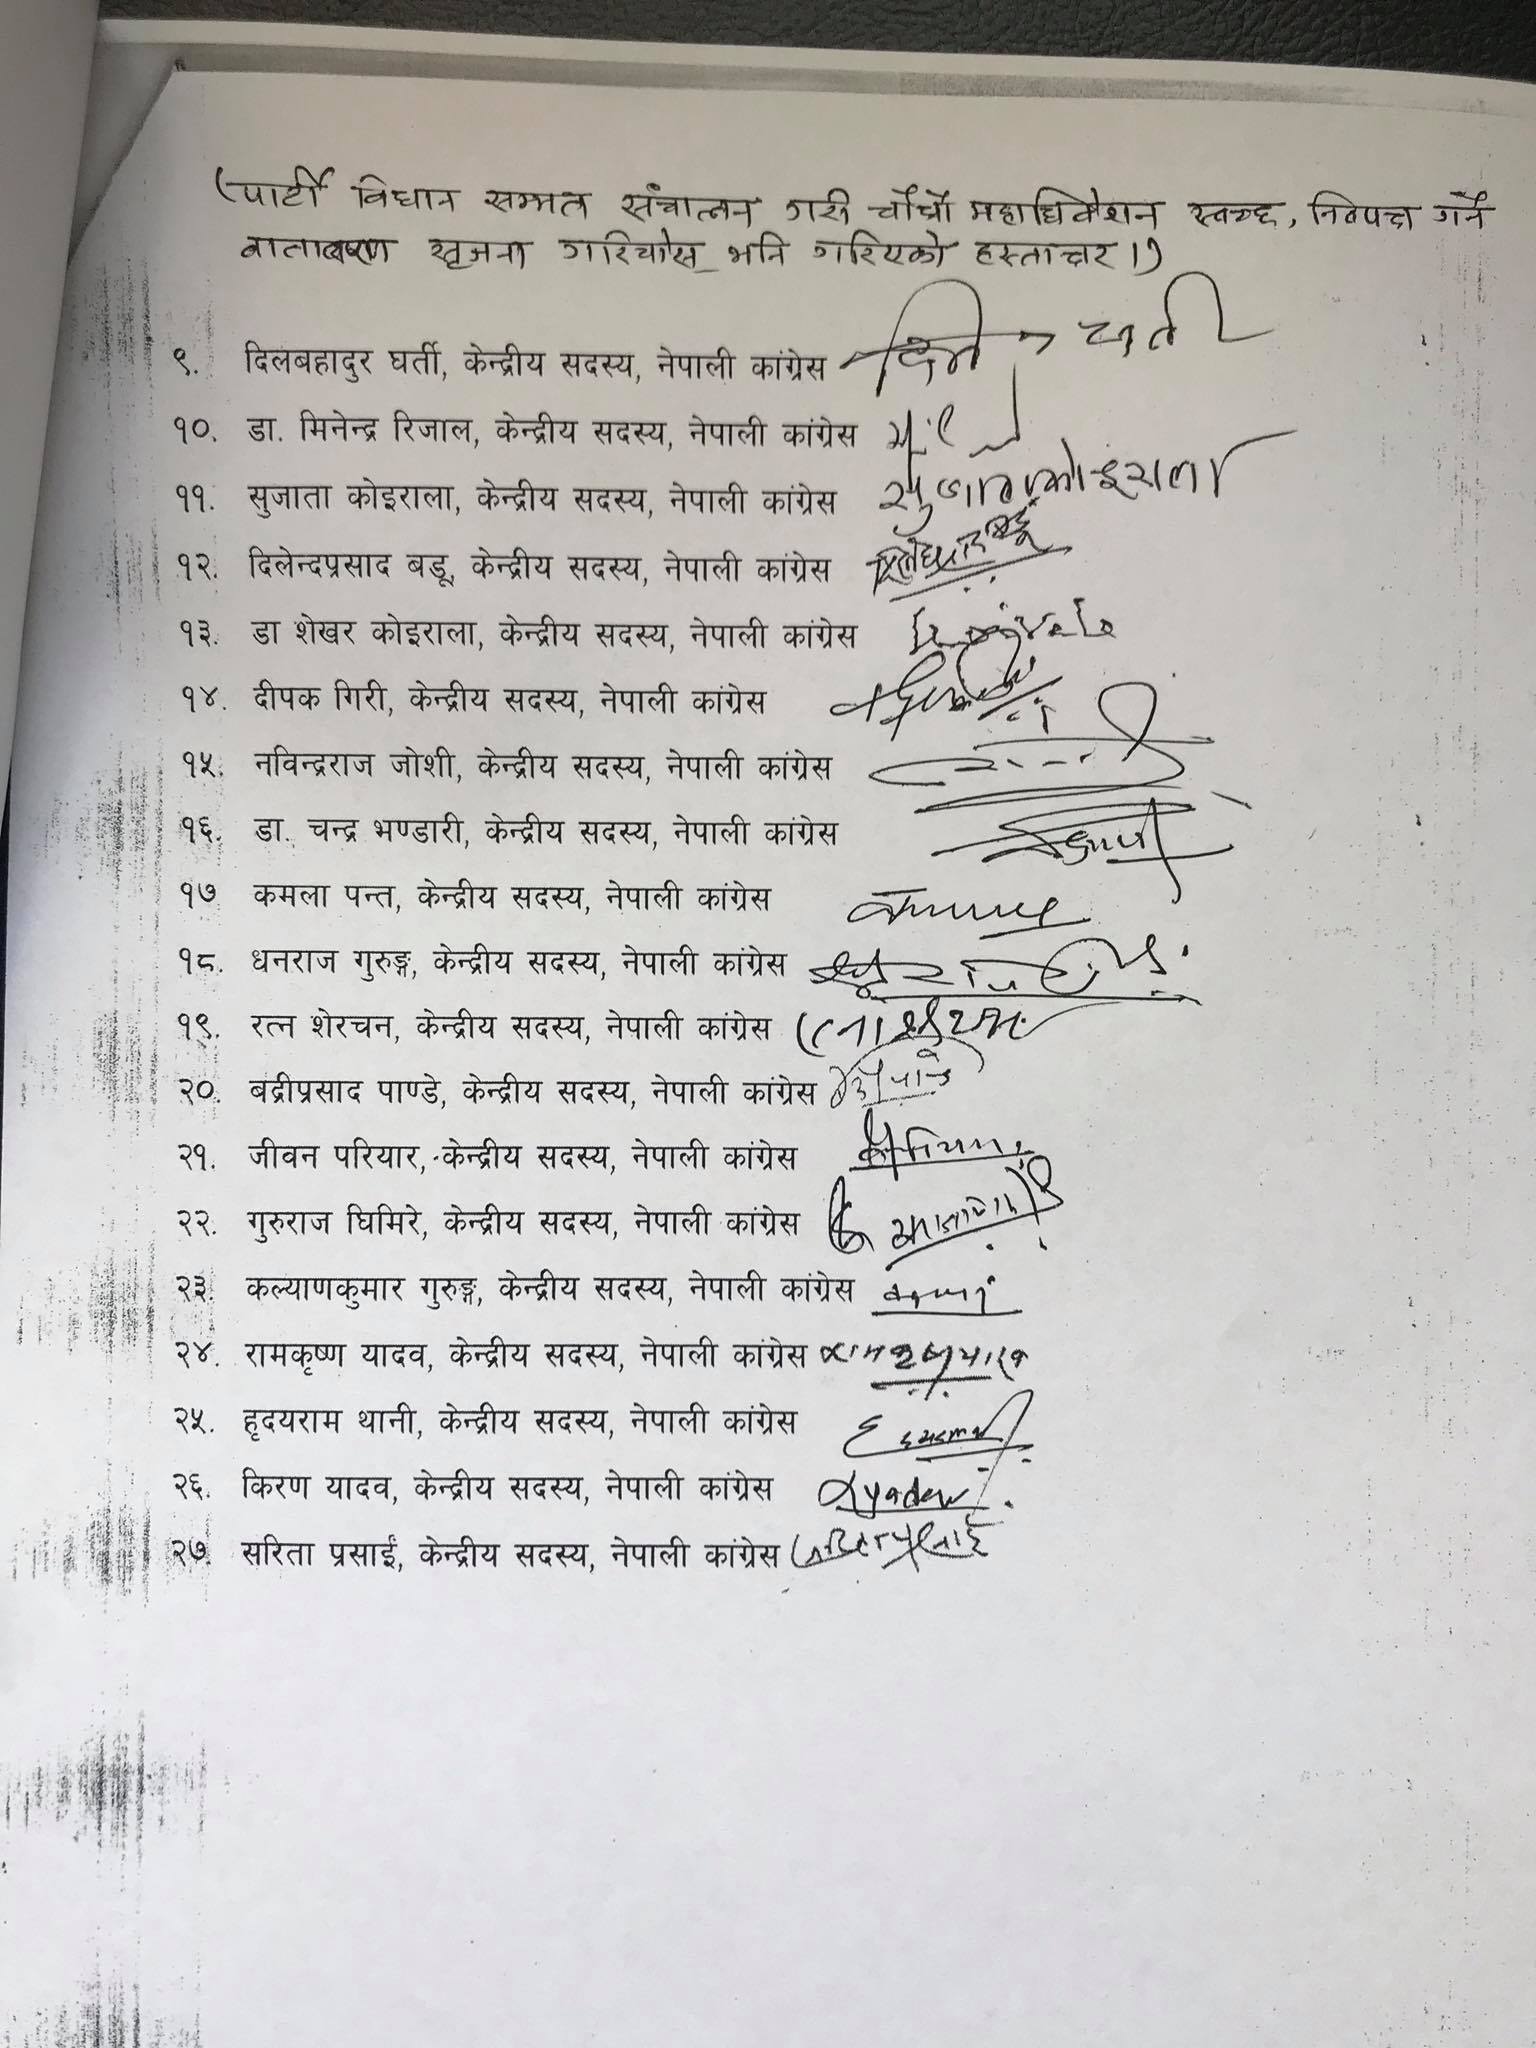 (पार्टी विधान सम्मत संचालन गरी चौधौं महाधिवेशन स्वच्छ, निष्पक्ष गर्ने
वातावरण सृजना गरियोस् भनि गरिएको हस्ताक्षर ।)
९. दिलबहादुर घर्ती, केन्द्रीय सदस्य, नेपाली कांग्रेस
१०. डा. मिनेन्द्र रिजाल, केन्द्रीय सदस्य, नेपाली कांग्रेस
११. सुजाता कोइराला, केन्द्रीय सदस्य, नेपाली कांग्रेस सुजाता कोइराला
१२. दिलेन्दप्रसाद बडू, केन्द्रीय सदस्य, नेपाली कांग्रेस
१३. डा शेखर कोइराला, केन्द्रीय सदस्य, नेपाली कांग्रेस
१४. दीपक गिरी, केन्द्रीय सदस्य, नेपाली कांग्रेस
१५. नविन्द्रराज जोशी, केन्द्रीय सदस्य, नेपाली कांग्रेस
१६. डा. चन्द्र भण्डारी, केन्द्रीय सदस्य, नेपाली कांग्रेस
१७ कमला पन्त, केन्द्रीय सदस्य, नेपाली कांग्रेस
१८. धनराज गुरुङ्ग, केन्द्रीय सदस्य, नेपाली कांग्रेस
१९. रत्न शेरचन, केन्द्रीय सदस्य, नेपाली कांग्रेस
२०. बद्रीप्रसाद पाण्डे, केन्द्रीय सदस्य, नेपाली कांग्रेस
२१. जीवन परियार, केन्द्रीय सदस्य, नेपाली कांग्रेस
२२. गुरुराज घिमिरे, केन्द्रीय सदस्य, नेपाली कांग्रेस
२३. कल्याणकुमार गुरुङ्ग, केन्द्रीय सदस्य, नेपाली कांग्रेस
२४. रामकृष्ण यादव, केन्द्रीय सदस्य, नेपाली कांग्रेस रामकृष्ण यादव
२५. हृदयराम थानी, केन्द्रीय सदस्य, नेपाली कांग्रेस
२६. किरण यादव, केन्द्रीय सदस्य, नेपाली कांग्रेस Kyadav
२७. सरिता प्रसाईं, केन्द्रीय सदस्य, नेपाली कांग्रेस